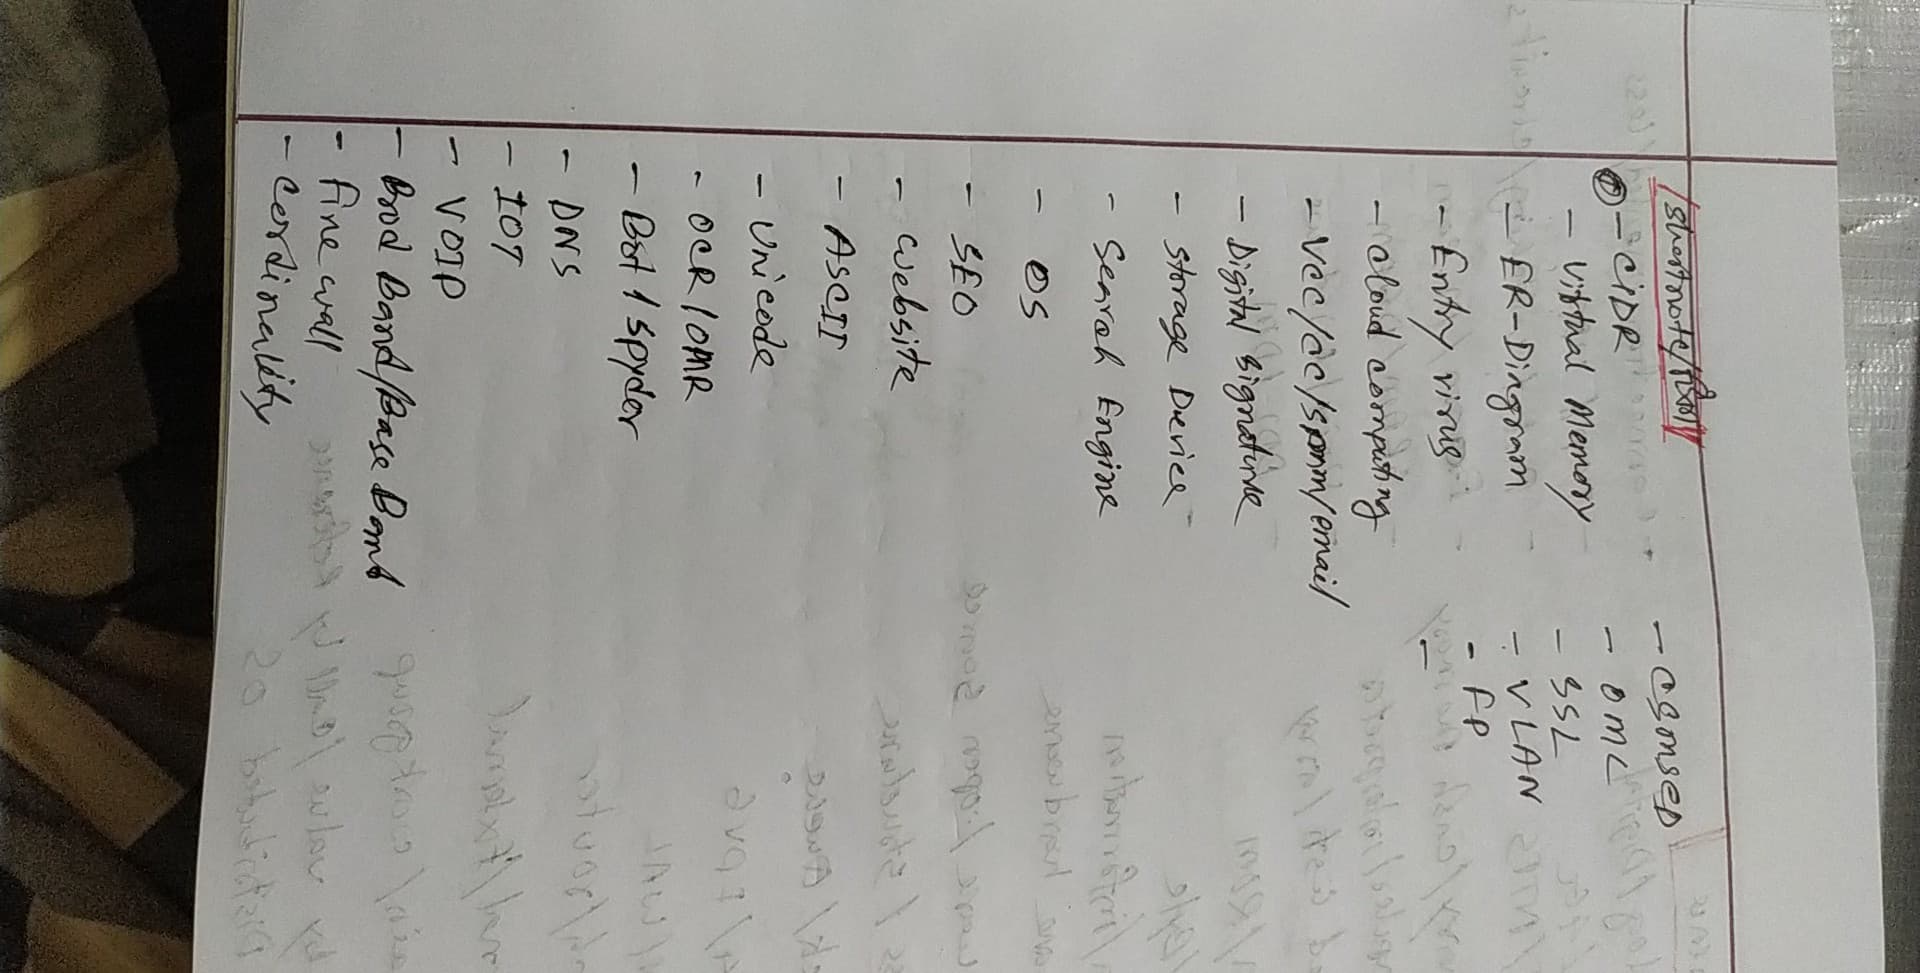 Shortnote/
① - CIDR
- Virtual Memory
- ER-Diagram
- Entry virus
- cloud computing
- Vcc/cc/spamm/email
- Digital signature
- Storage Device
- Search Engine
- OS
- SEO
- website
- ASCII
- Unicode
- OCR/OMR
- Bot/spyder
- DNS
- IOT
- VOIP
- Brod Band/Base Band
- fire wall
- cordinality
- DML
- SSL
- VLAN
- FP
-